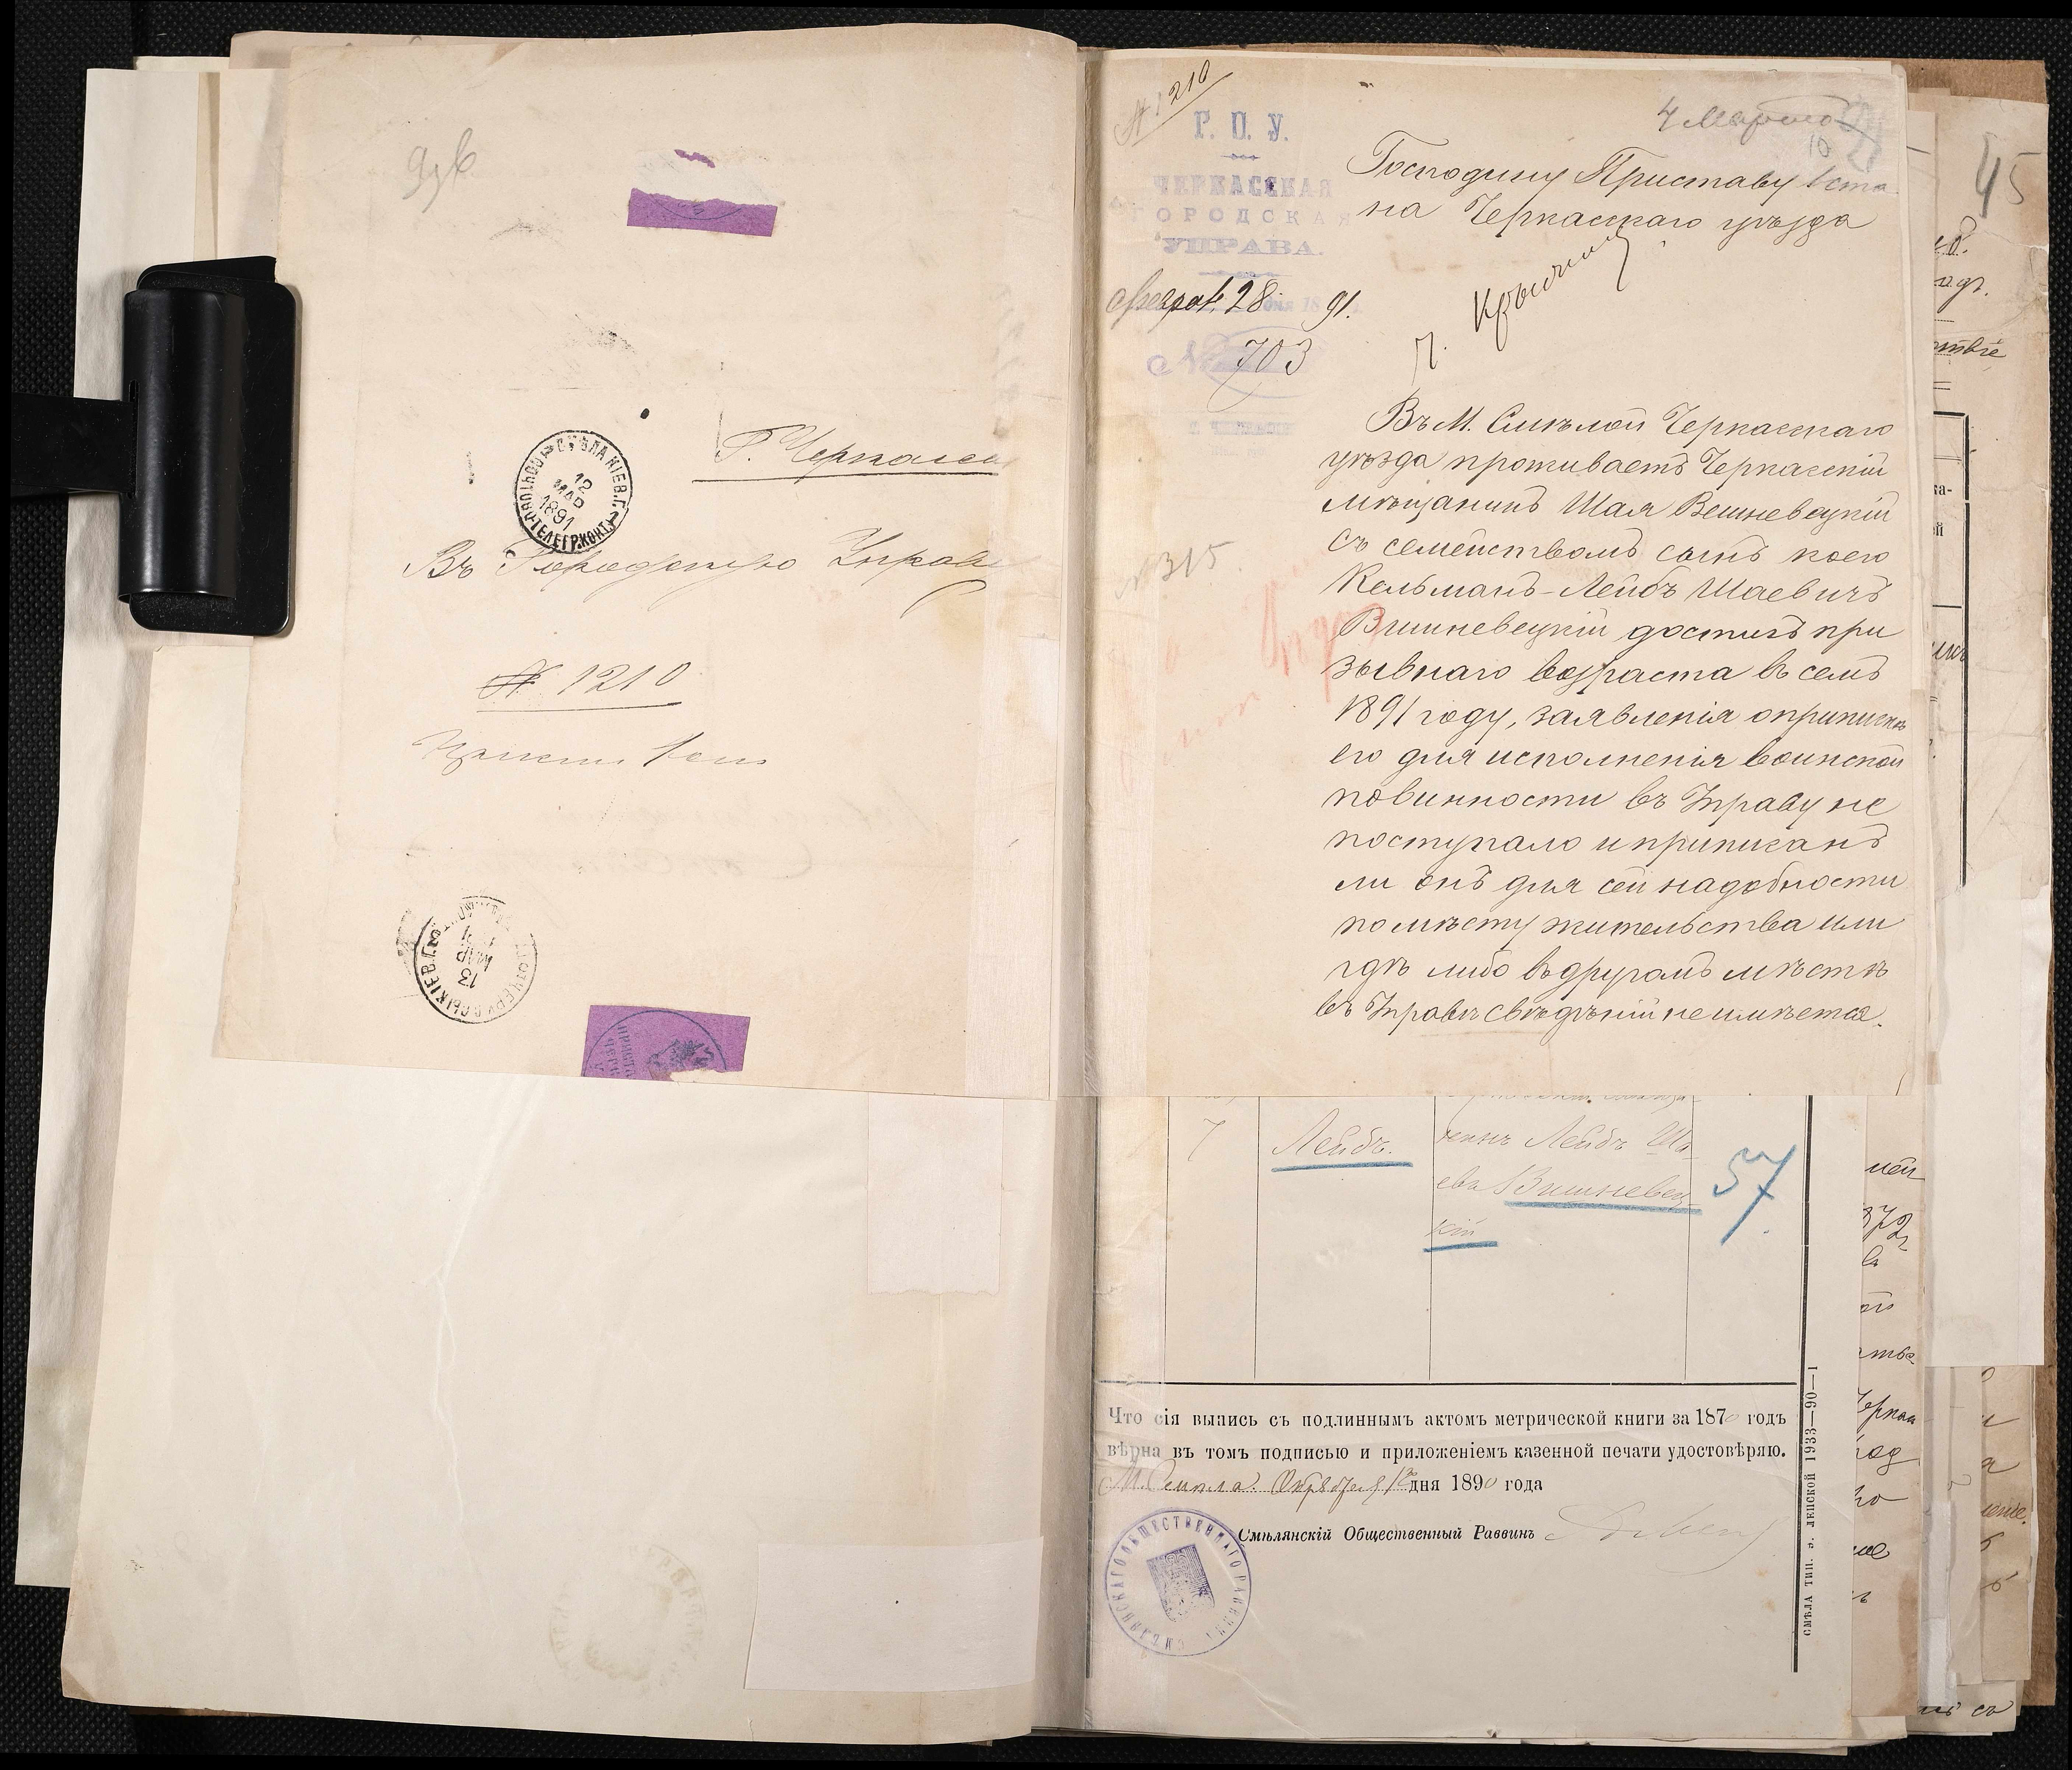 Г. Черкасы
СМѢЛА КІЕВ. Г.
12
МАР
1891
ТЕЛЕГР. КОНТ.
Въ Городскую Управу
№ 1210
13
МАР
КІЕВ. Г.
№ 1210
Г. П. У.
ЧЕРКАССКАЯ
ГОРОДСКАЯ
УПРАВА.
Феврал. 28 91.
№ 703
4 Марта
Господину Приставу 1 ста
на Черкасскаго уѣзда
№ 315.
Въ М. Смѣлой Черкасскаго
уѣзда проживаетъ Черкасскій
мѣщанинъ Шая Вишневецкій
съ семействомъ сынъ коего
Кельманъ-Лейбъ Шаевичъ
Вишневецкій достигъ при
зывнаго возраста въ семъ
1891 году, заявленія о припискѣ
его для исполненія воинской
повинности въ Управу не
поступало и приписанъ
ли онъ для сей надобности
по мѣсту жительства или
гдѣ либо въ другомъ мѣстѣ
въ Управѣ свѣдѣній не имѣется.
7 Лейбъ. Лейбъ Ша
евъ Вишневец
кій
57
Что сія выпись съ подлиннымъ актомъ метрической книги за 1870 годъ
вѣрна въ томъ подписью и приложеніемъ казенной печати удостовѣряю.
М. Смѣла. Октября 1 дня 1890 года
Смѣлянскій Общественный Раввинъ
СМѢЛЯНСКАГО ОБЩЕСТВЕННАГО РАВВИНА
СМѢЛА ТИП. Э. ЛЕПСКОЙ 1933—90—1
45